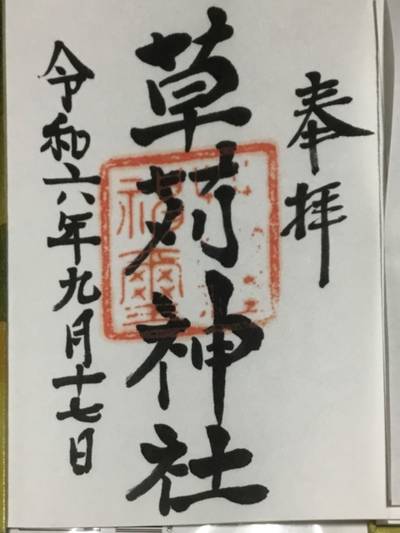 奉拝
草苅神社
令和六年九月十七日